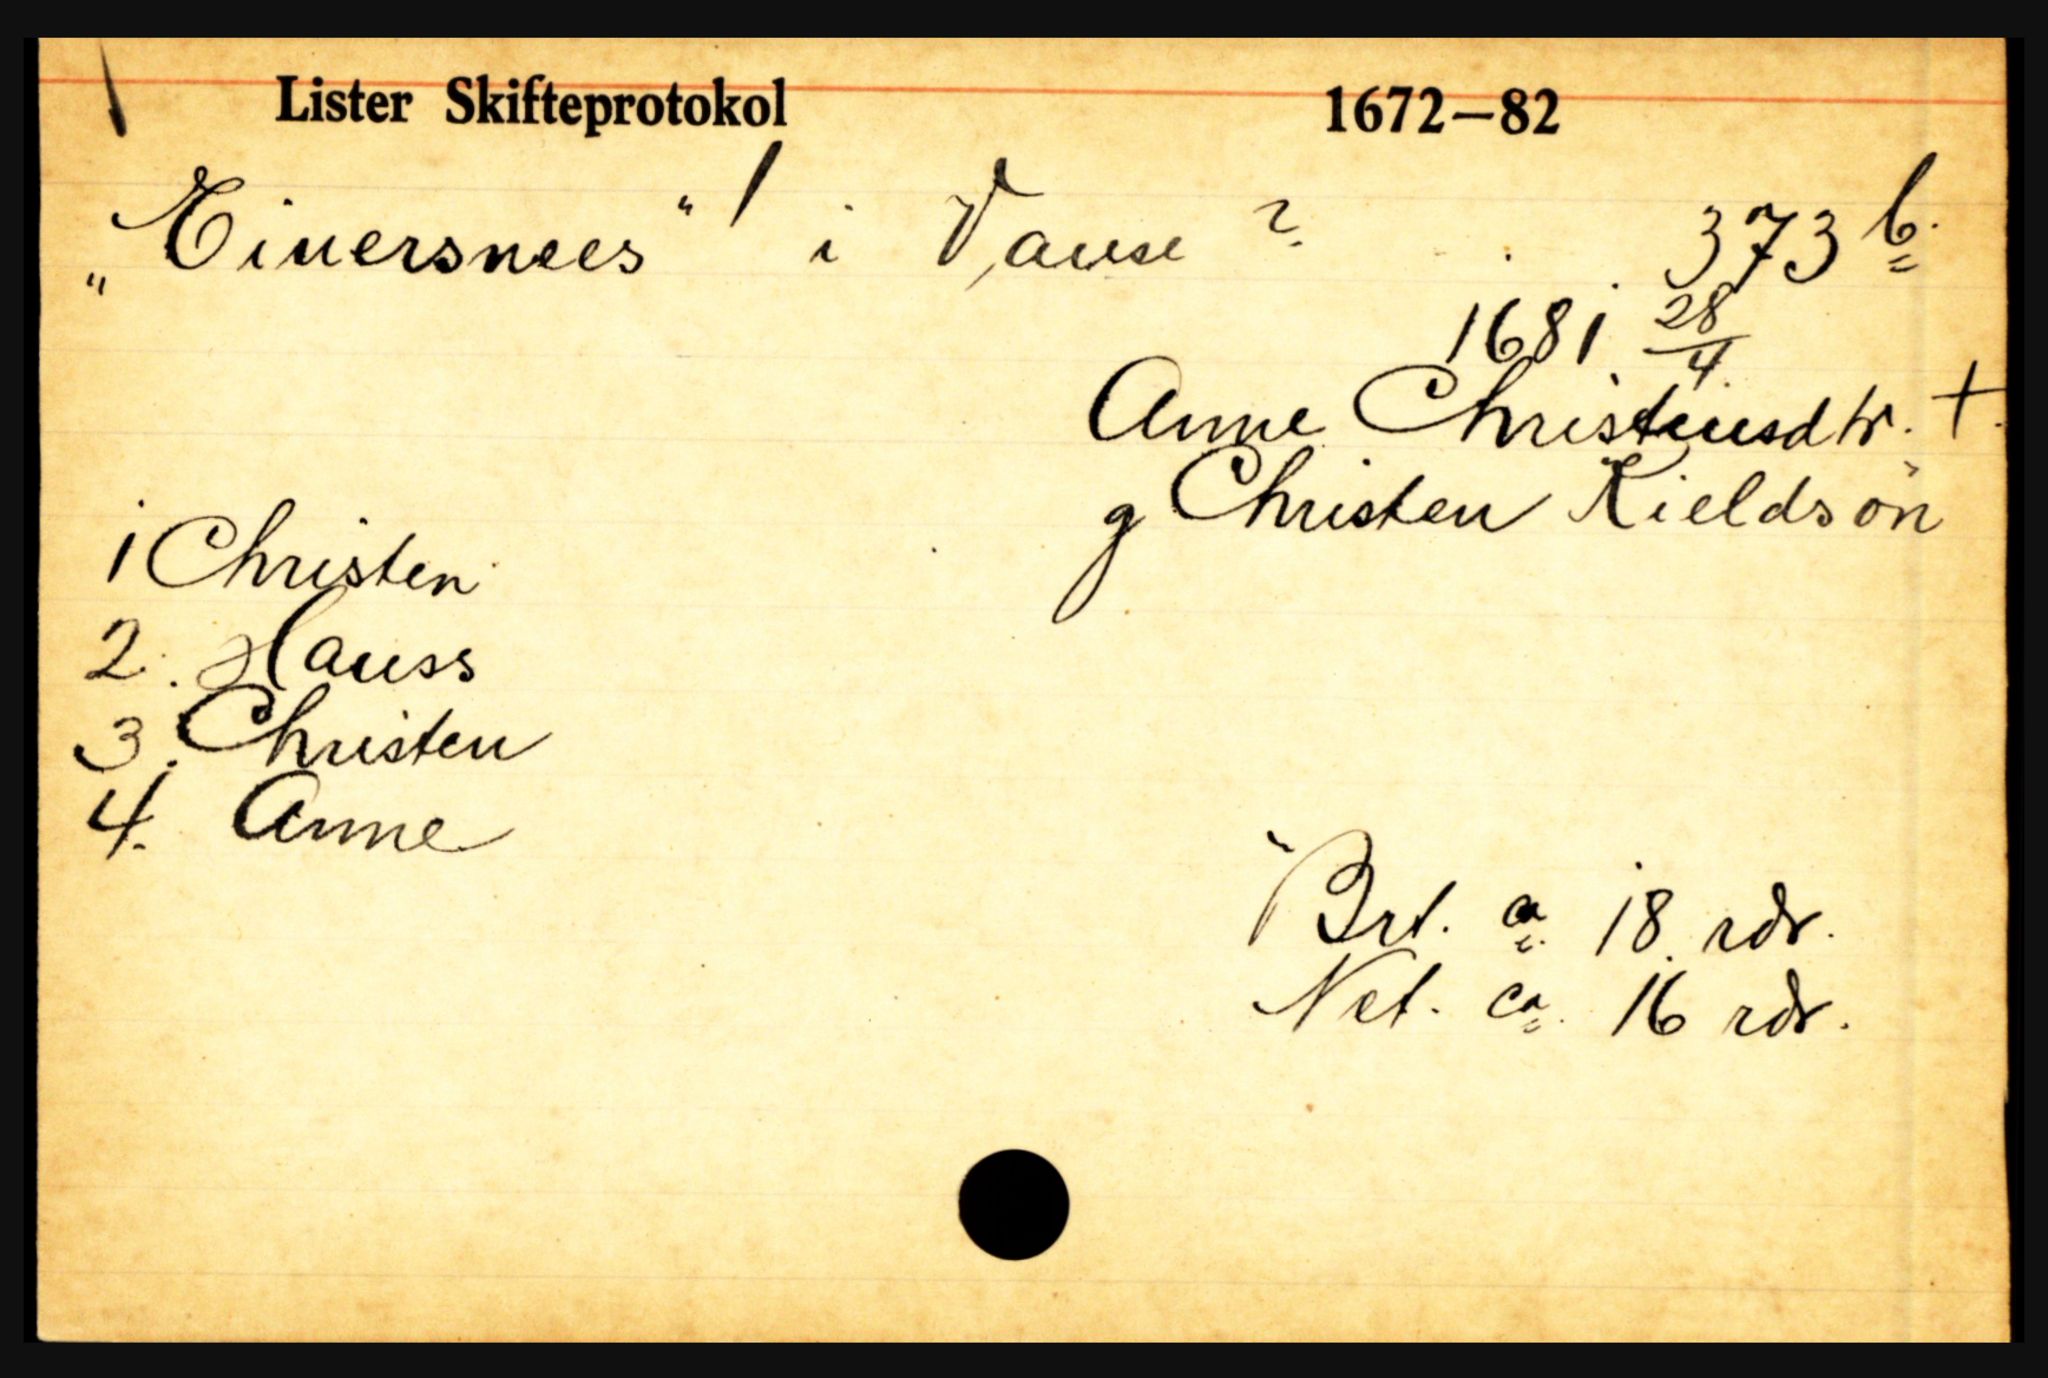 Lister Skifteprotokol 1672–82
„Einersnees“ / i Vanse ? 373 b.
1681 28/4
Anne Christensdtr. +.
g Christen Kieldsön
1 Christen
2. Hanss
3. Christen
4. Anne
Brt. ca. 18 rdr.
Net. ca. 16 rdr.